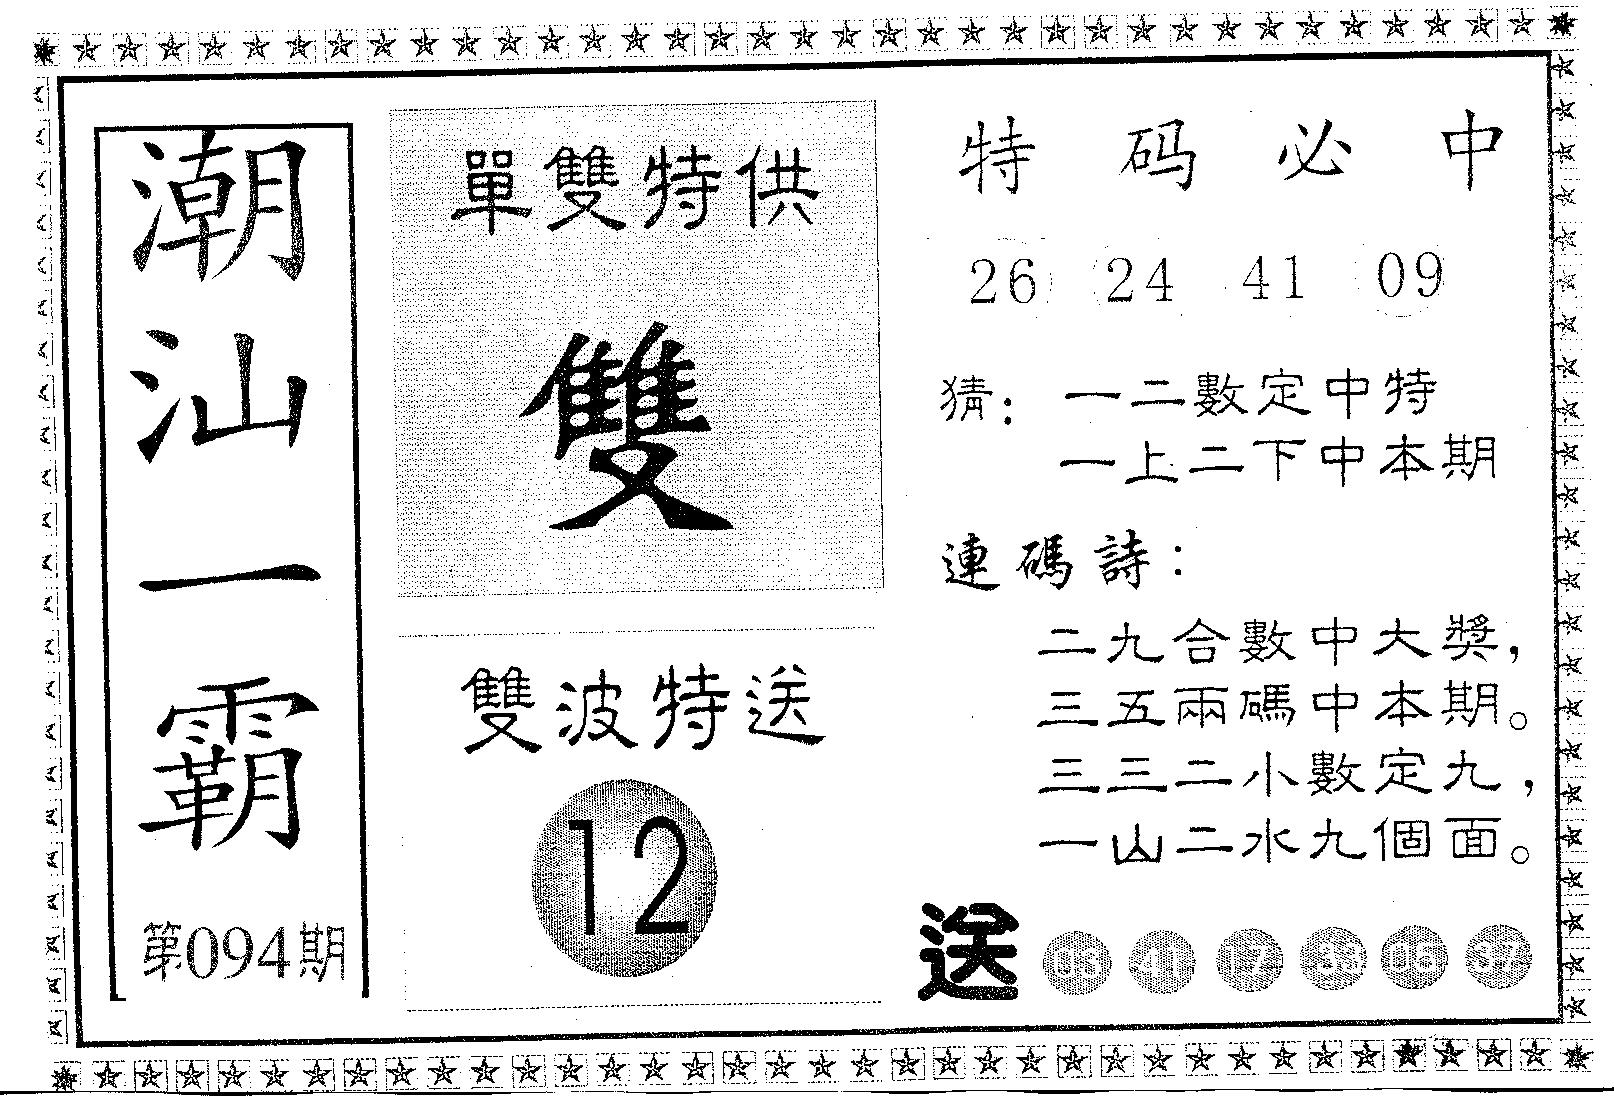 潮汕一霸
第094期
單雙特供
雙
雙波特送
12
特码必中
26 24 41 09
猜：一二數定中特
一上二下中本期
連碼詩：
二九合數中大獎，
三五兩碼中本期。
三三二小數定九，
一山二水九個面。
送 03 41 17 33 06 37